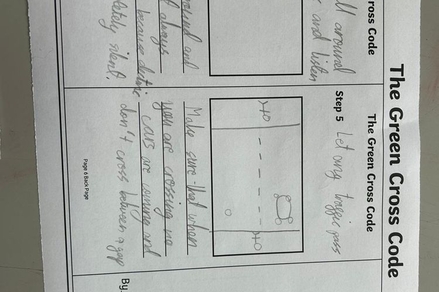 The Green Cross Code
ross Code
ll around
and listen
around and
always
because electric
letely silent.
The Green Cross Code
Step 5 Let any traffic pass
Make sure that when
you are crossing no
cars are coming and
don't cross between a gap
Page 6 Back Page
By